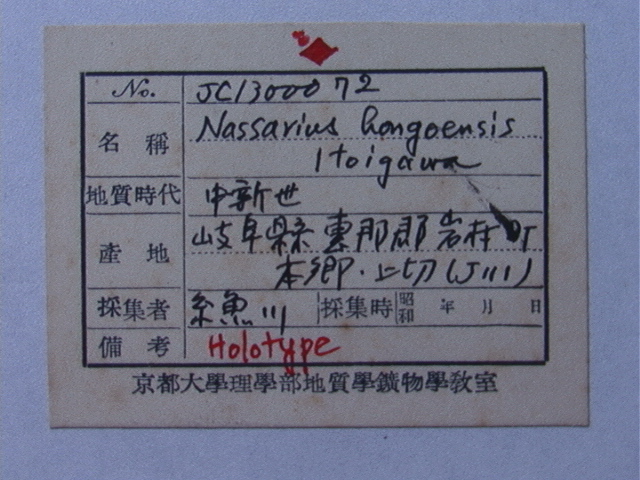 No. JC1300072
名稱 Nassarius hongoensis
Itoigawa
地質時代 中新世
產地 岐阜縣惠那郡岩村町
本郷・上切(J111)
採集者 糸魚川 採集時 昭和 年 月 日
備考 Holotype
京都大學理學部地質學鑛物學敎室